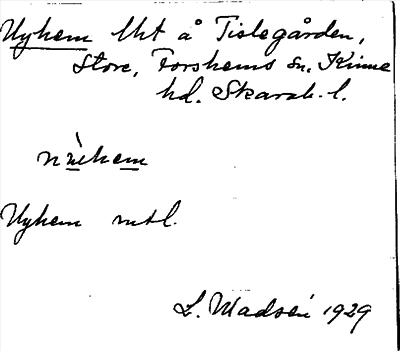 Nyhem lht å Tislegården,
Store, Forshems sn. Kinne
hd. Skarab. l.
nỳhem
Nyhem mtl.
L. Madsén 1929